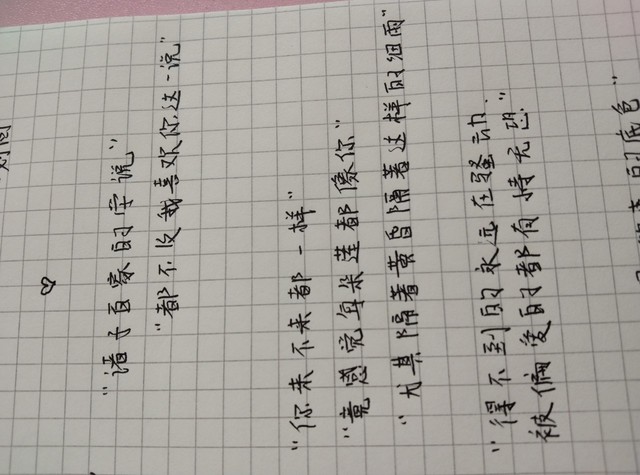 "诸子百家的字说"
"都不及我喜欢你这一说"
"你来不来都一样"
"竟感觉每朵莲都像你"
"尤其隔着黄昏隔着这样的细雨"
"得不到的永远在骚动,
被偏爱的都有恃无恐"
的底色"